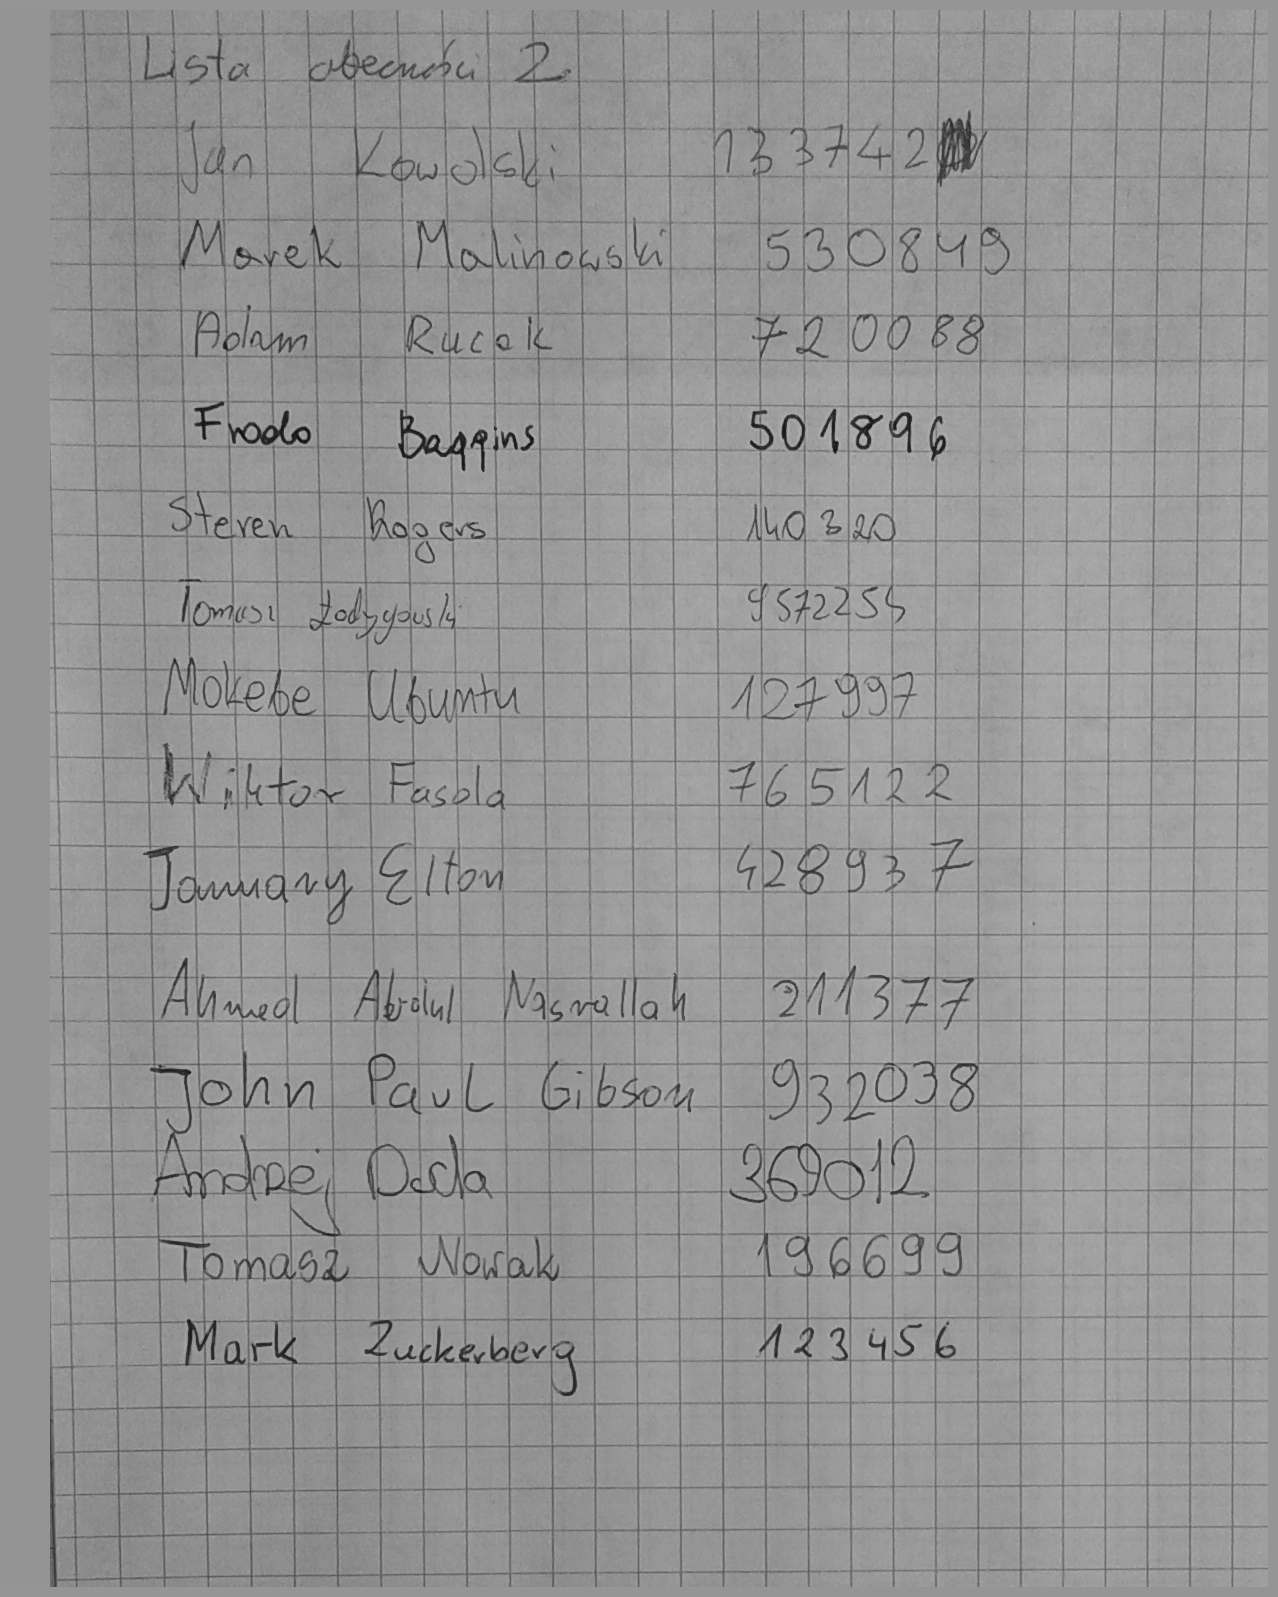 Lista obecności 2
Jan Kowalski 133742
Marek Malinowski 530849
Adam Rucak 720088
Frodo Baggins 501896
Steven Rogers 140320
Tomasz 9572254
Mokebe Ubuntu 127997
Wiktor Fasola 765122
January Elton 428937
Ahmed Abdul Nasrallah 211377
John Paul Gibson 932038
Andrzej 369012
Tomasz Nowak 196699
Mark Zuckerberg 123456